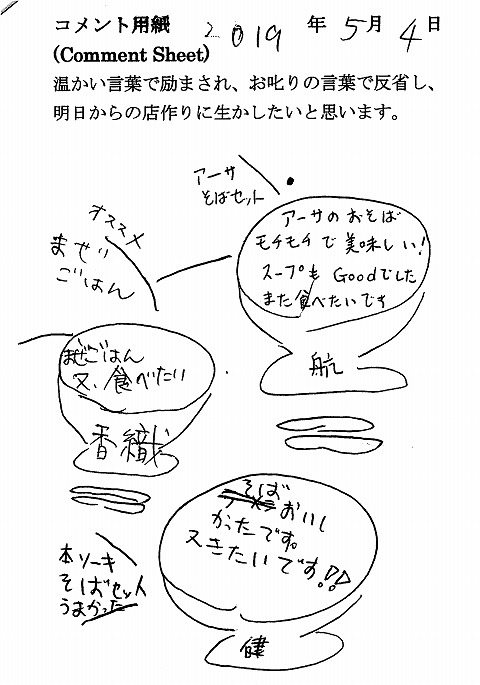 コメント用紙 2019 年 5月 4日
(Comment Sheet)
温かい言葉で励まされ、お叱りの言葉で反省し、
明日からの店作りに生かしたいと思います。
アーサ
そばセット
アーサのおそば
モチモチで美味しい!
スープも Goodでした
また食べたいです
航
オススメ
まぜ
ごはん
まぜごはん
又、食べたい
香織
そば
おいし
かったです。
又きたいです!!
健
本ソーキ
そばセット
うまかった